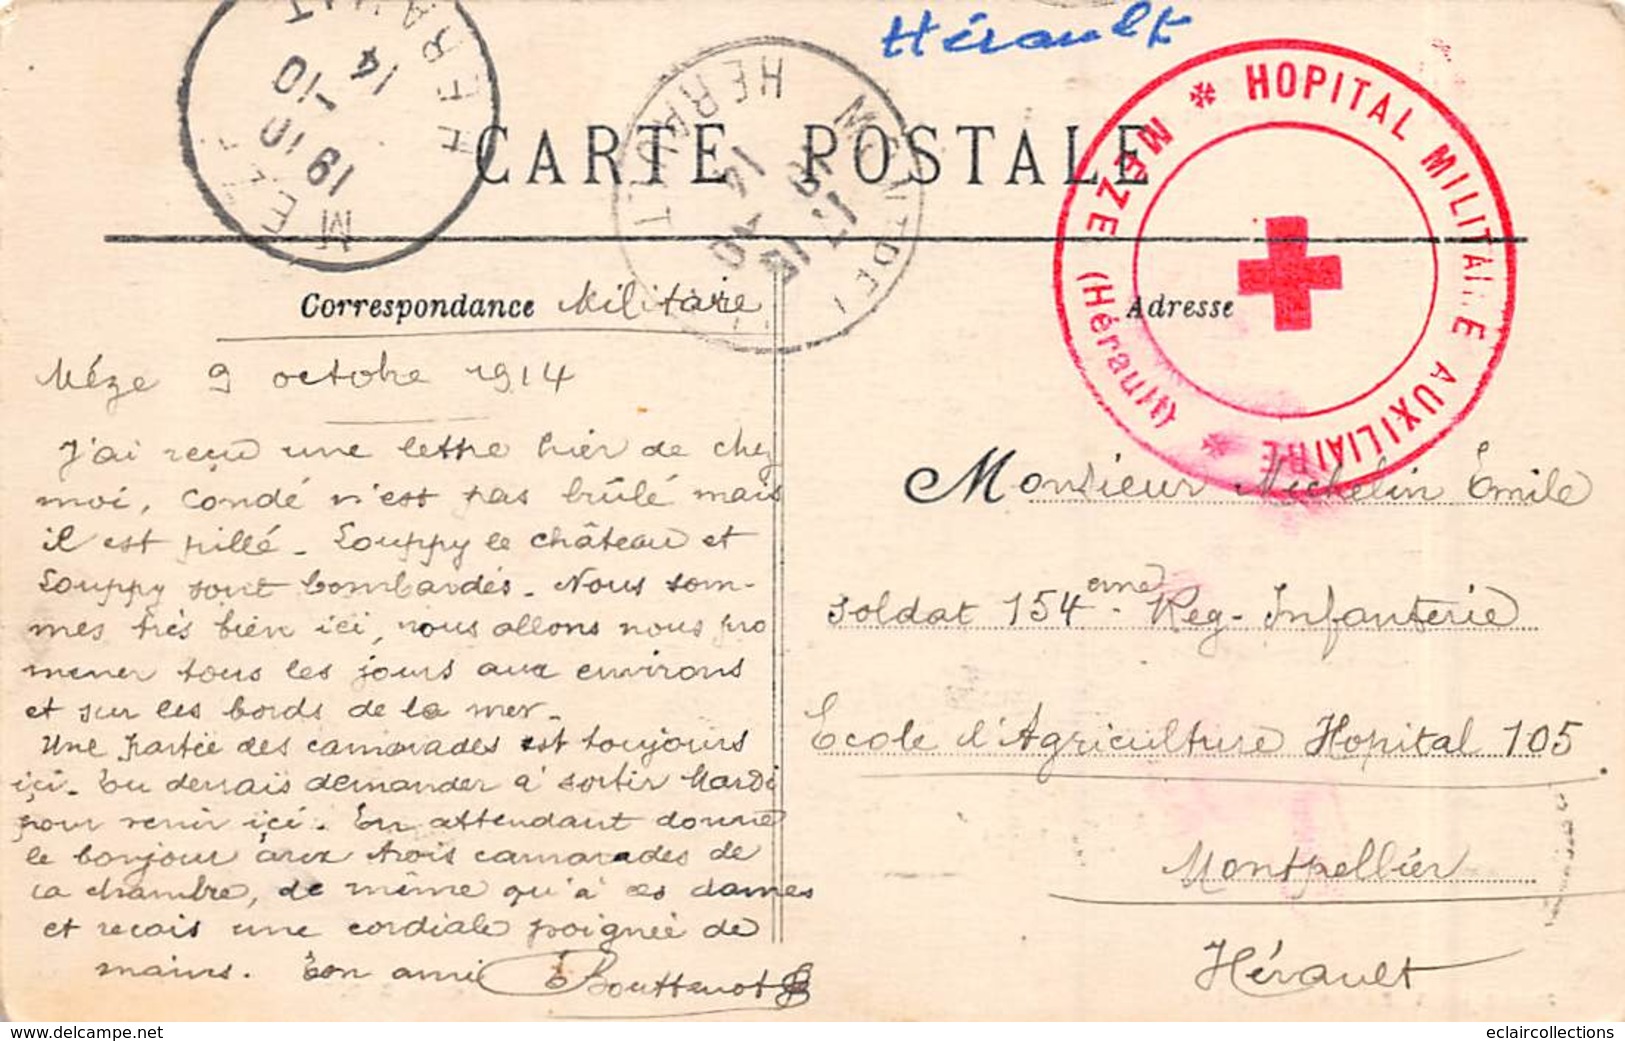 Hérault
MEZE HERAULT
19 10
1-10
14
HERAULT
CARTE POSTALE
HOPITAL MILITAIRE AUXILIAIRE
MEZE (Hérault)
Correspondance Militaire
Adresse
Mèze 9 octobre 1914
J'ai reçu une lettre hier de chez
moi, Condé n'est pas brûlé mais
il est pillé. Louppy le château et
Louppy sont bombardés. Nous som-
mes très bien ici, nous allons nous pro
mener tous les jours aux environs
et sur les bords de la mer.
Une partie des camarades est toujours
içi. Tu devrais demander à sortir Mardi
pour venir içi. En attendant donne
le bonjour aux trois camarades de
ta chambre, de même qu'à ces dames
et reçois une cordiale poignée de
mains. Ton ami Bouttenot
Monsieur Michelin Émile
soldat 154eme Reg- Infanterie
Ecole d'Agriculture Hopital 105
Montpellier
Hérault
www.delcampe.net
eclaircollections